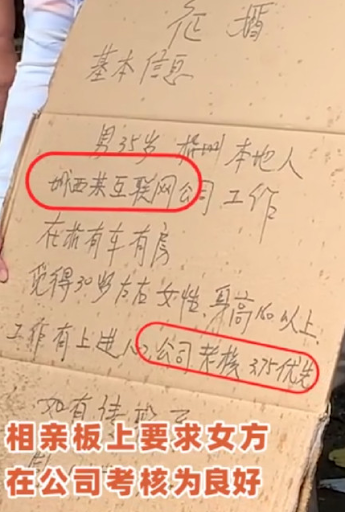 征婚
基本信息
男35岁 杭州本地人
城西某互联网公司工作
在杭有车有房
觅得30岁左右女性,身高160以上,
工作有上进心,公司考核3.75优先
如有
相亲板上要求女方
在公司考核为良好